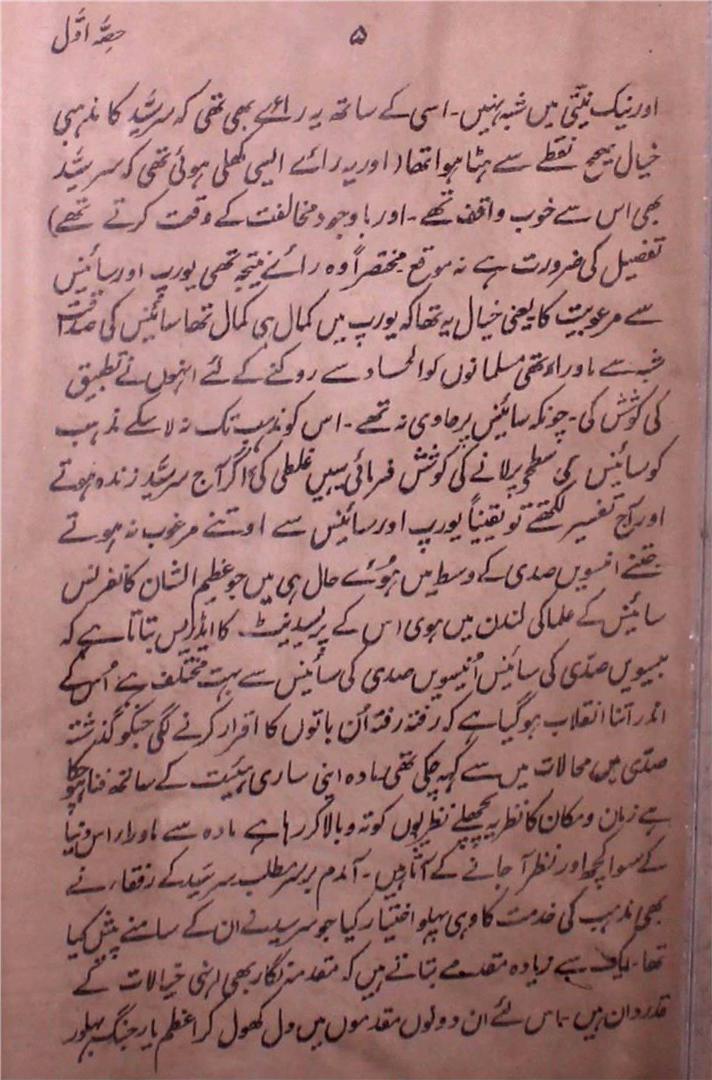 ۵
حصہ اوّل
اور نیک نیتی میں شبہ نہیں۔ اسی کے ساتھ یہ رائے بھی تھی کہ سر سیّد کا مذہبی
خیال صحیح نقطے سے ہٹا ہوا تھا (اور یہ رائے ایسی کھلی ہوئی تھی کہ سر سیّد
بھی اس سے خوب واقف تھے۔ اور باوجود مخالفت کے وقعت کرتے تھے)
تفصیل کی ضرورت ہے نہ موقع مختصراً وہ رائے نتیجہ تھی یورپ اور سائینس
سے مرعوبیت کا یعنی خیال یہ تھا کہ یورپ میں کمال ہی کمال تھا سائنس کی صداقت
شبہ سے ماوراء تھی مسلمانوں کو الحاد سے روکنے کے لئے انہوں نے تطبیق
کی کوشش کی۔ چونکہ سائینس پر حاوی نہ تھے۔ اس کو مذہب تک نہ لا سکے مذہب
کو سائینس کی سطح پر لانے کی کوشش فرمائی یہیں غلطی کی، اگر آج سر سیّد زندہ ہوتے
اور آج تفسیر لکھتے تو یقیناً یورپ اور سائینس سے اوتنے مرغوب نہ ہوتے
جتنے انیسویں صدی کے وسط میں ہوئے حال ہی میں جو عظیم الشان کانفرنس
سائینس کے علما کی لندن میں ہوی اس کے پریسیڈینٹ کا ایڈریس بتاتا ہے کہ
بیسویں صدّی کی سائینس اُنیسویں صدی کی سائینس سے بہت مختلف ہے اُس کے
اندر اتنا انقلاب ہو گیا ہے کہ رفتہ رفتہ اُن باتوں کا اقرار کرنے لگی جنکو گذشتہ
صدّی میں محالات میں سے کہہ چکی تھی مادہ اپنی ساری ہیئیت کے ساتھ فنا ہو چکا
ہے زمان و مکان کا نظریہ پچھلے نظریوں کو تہ و بالا کر رہا ہے مادہ سے ماوراء اس دنیا
کے سوا کچھ اور نظر آ جانے کے آثار ہیں۔ آمدم بر سر مطلب سر سید کے رفقاء نے
بھی مذہب کی خدمت کا وہی پہلو اختیار کیا جو سر سید نے ان کے سامنے پیش کیا
تھا۔ ایک سے زیادہ مقدمے بتاتے ہیں کہ مقدمہ نگار بھی انہی خیالات کے
قدردان ہیں۔ اس لئے ان دونوں مقدموں میں دل کھول کر اعظم یار جنگ بہادر